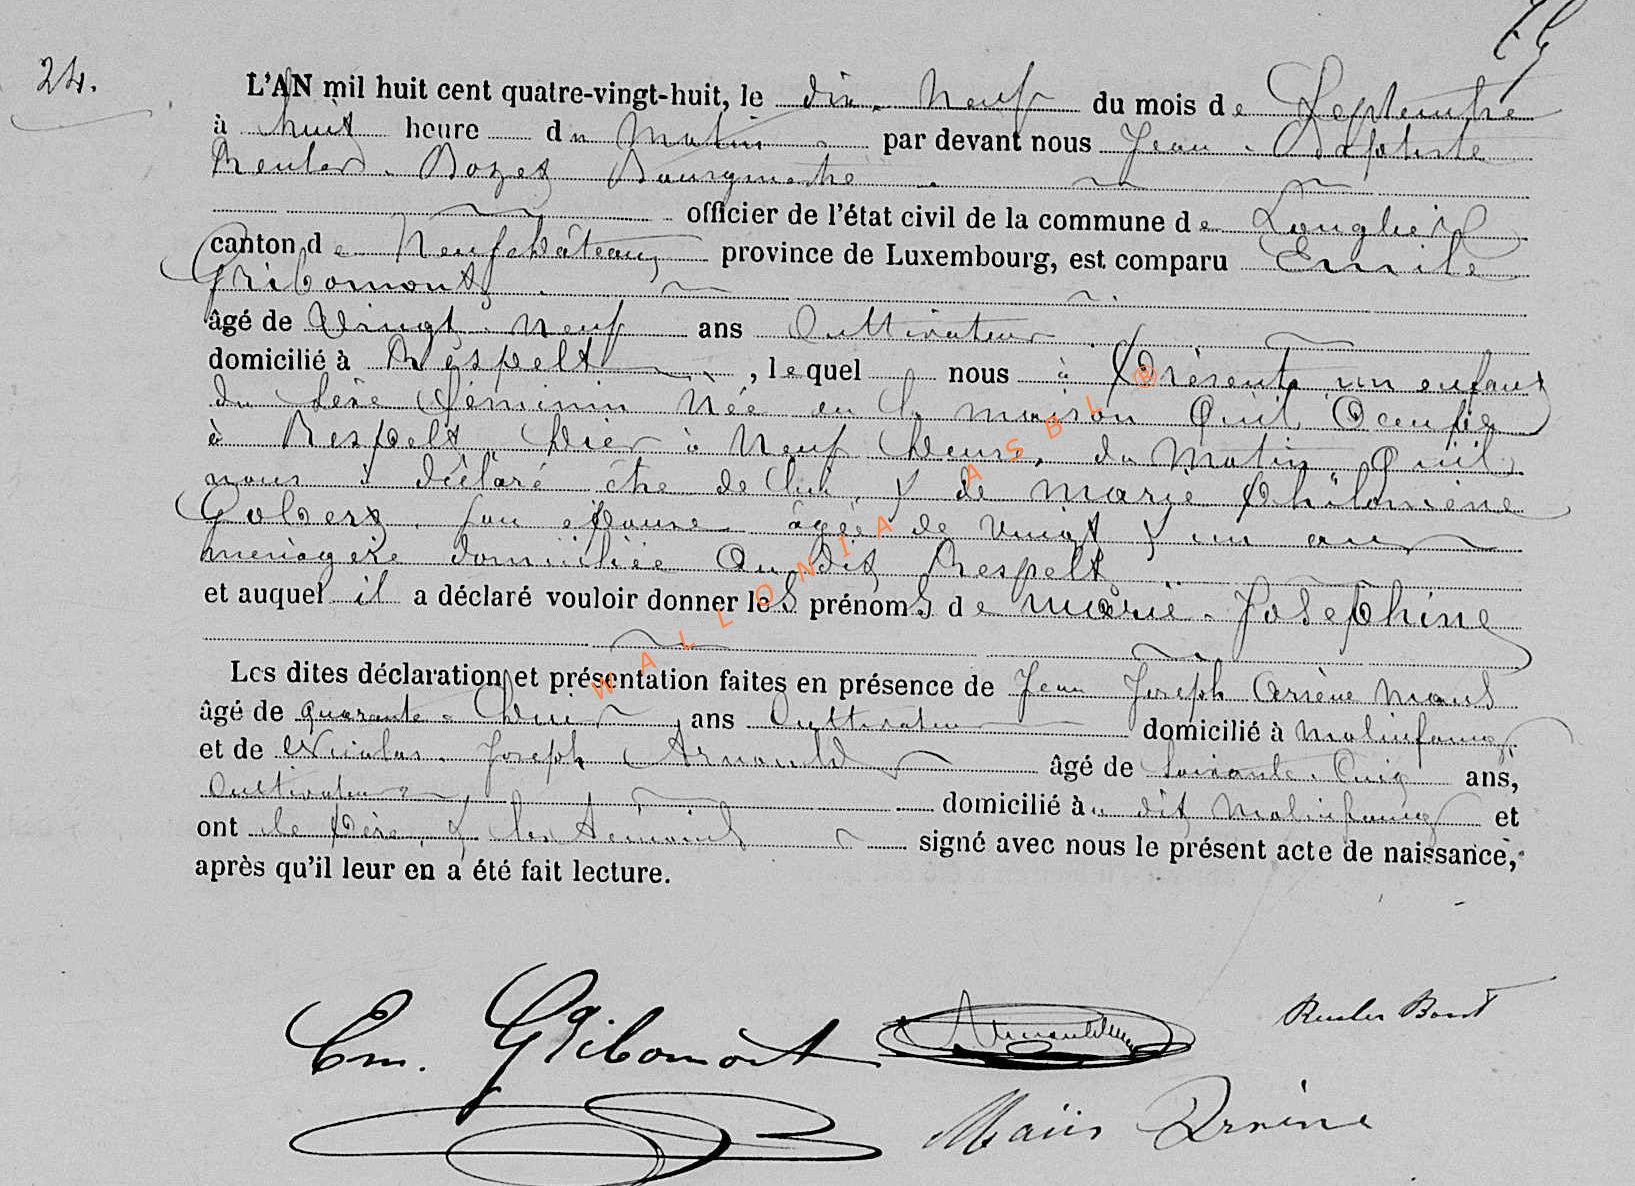 24.
L'AN mil huit cent quatre-vingt-huit, le dix-neuf du mois de Septembre
à huit heure du Matin par devant nous Jean-Baptiste
Reuler Bozet Bourgmestre
officier de l'état civil de la commune de Longlier
canton de Neufchâteau, province de Luxembourg, est comparu Emile
Gribomont,
âgé de Vingt-neuf ans Cultivateur
domicilié à Respelt, lequel nous à présenté un enfant
du sexe féminin née en la maison Qu'il Occupe
à Respelt hier à Neuf heures du Matin, Qu'il
nous à déclaré être de lui, & de Marie Philomène
Gobert, son épouse âgée de vingt & un ans
ménagère domiciliée Au dit Respelt
et auquel il a déclaré vouloir donner les prénoms de Marie-Joséphine
Les dites déclaration et présentation faites en présence de Jean Joseph Arsène Maus
âgé de quarante-huit ans Cultivateur domicilié à Molinfaing,
et de Nicolas-Joseph Arnould âgé de soixante-Cinq ans,
Cultivateur domicilié à u dit Molinfaing et
ont le père & les témoins signé avec nous le présent acte de naissance,
après qu'il leur en a été fait lecture.
Em. Gribomont
Maüs Arsène
WALLONIA ASBL ®